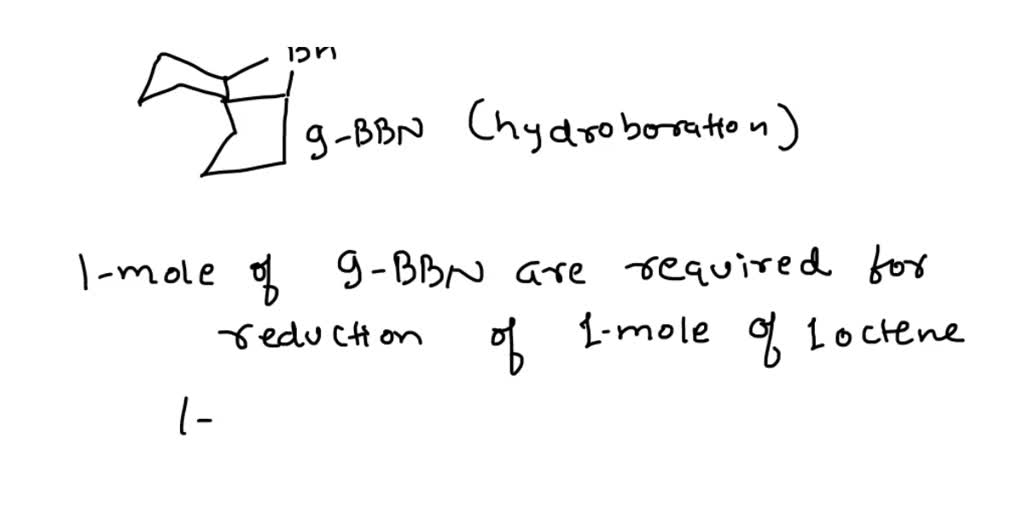 9-BBN (hydroboration)
1-mole of 9-BBN are required for
reduction of 1-mole of 1 octene
1-